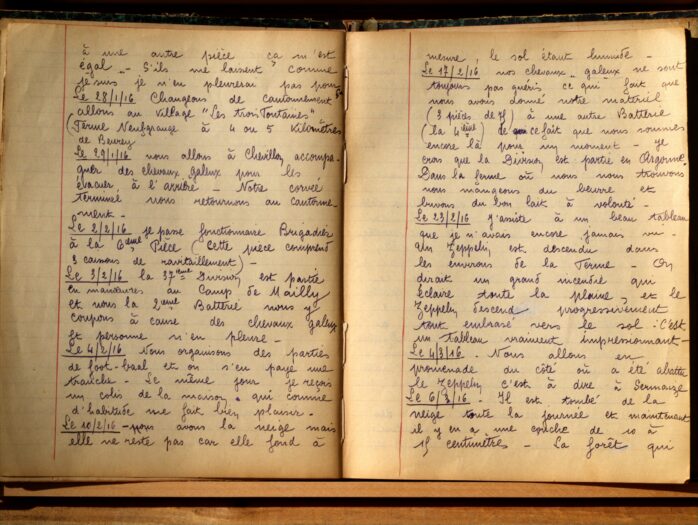 à une autre pièce ça m'est
égal - S'ils me laissent comme
je suis je n'en pleurerai pas pour
Le 28/1/16 Changeons de cantonnement
allons au village "Les trois Fontaines"
(Ferme Neufgrange à 4 ou 5 Kilomètres
de Beurey
Le 29/1/16 nous allons à Chevillon accompa-
gner des chevaux galeux pour les
évacuer à l'arrière - Notre corvée
terminée nous retournons au cantonne-
ment -
Le 2/2/16 je passe fonctionnaire Brigadier
à la 6ème Pièce (Cette pièce comprend
3 caissons de ravitaillement) -
Le 3/2/16 la 37ième Division est partie
en manœuvres au Camp de Mailly
et nous la 2ème Batterie nous y
coupons à cause des chevaux galeux
Et personne n'en pleure -
Le 4/2/16 Nous organisons des parties
de foot-baal et on s'en paye une
tranche - Le même jour je reçois
un colis de la maison, qui comme
d'habitude me fait bien plaisir -
Le 10/2/16 - nous avons la neige mais
elle ne reste pas car elle fond à
mesure, le sol étant humide -
Le 17/2/16 nos chevaux galeux ne sont
toujours pas guéris ce qui fait que
nous avons donné notre matériel
(3 pièces de 75) à une autre Batterie
(la 4ème) ce fait que nous sommes
encore là pour un moment - je
crois que la Division est partie en Argonne
Dans la ferme où nous nous trouvons
nous mangeons du beurre et
buvons du bon lait à volonté -
Le 23/2/16 j'assiste à un beau tableau
que je n'avais encore jamais vu -
Un Zeppelin est descendu dans
les environs de la Ferme - On
dirait un grand incendie qui
éclaire toute la plaine, et le
Zeppelin descend progressivement
tout embrasé vers le sol : C'est
un tableau vraiment impressionnant -
Le 4/3/16. Nous allons en
promenade du côté où a été abattu
le Zeppelin c'est à dire à Sermaize
Le 6/3/16 - Il est tombé de la
neige toute la journée et maintenant
il y en a une couche de 10 à
15 centimètres - La forêt qui